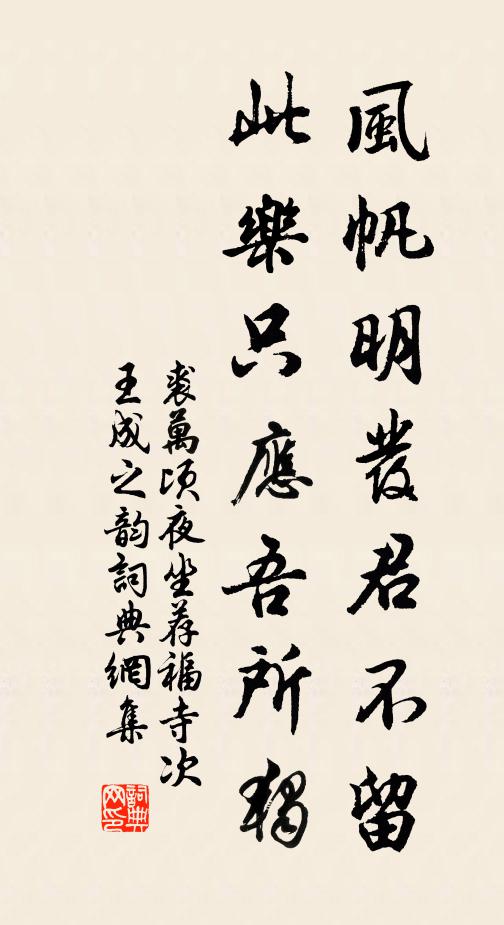 風帆明發君不留
此樂只應吾所獨
裘萬頃夜坐荐福寺次
王成之韵詞典網集
詞典网印